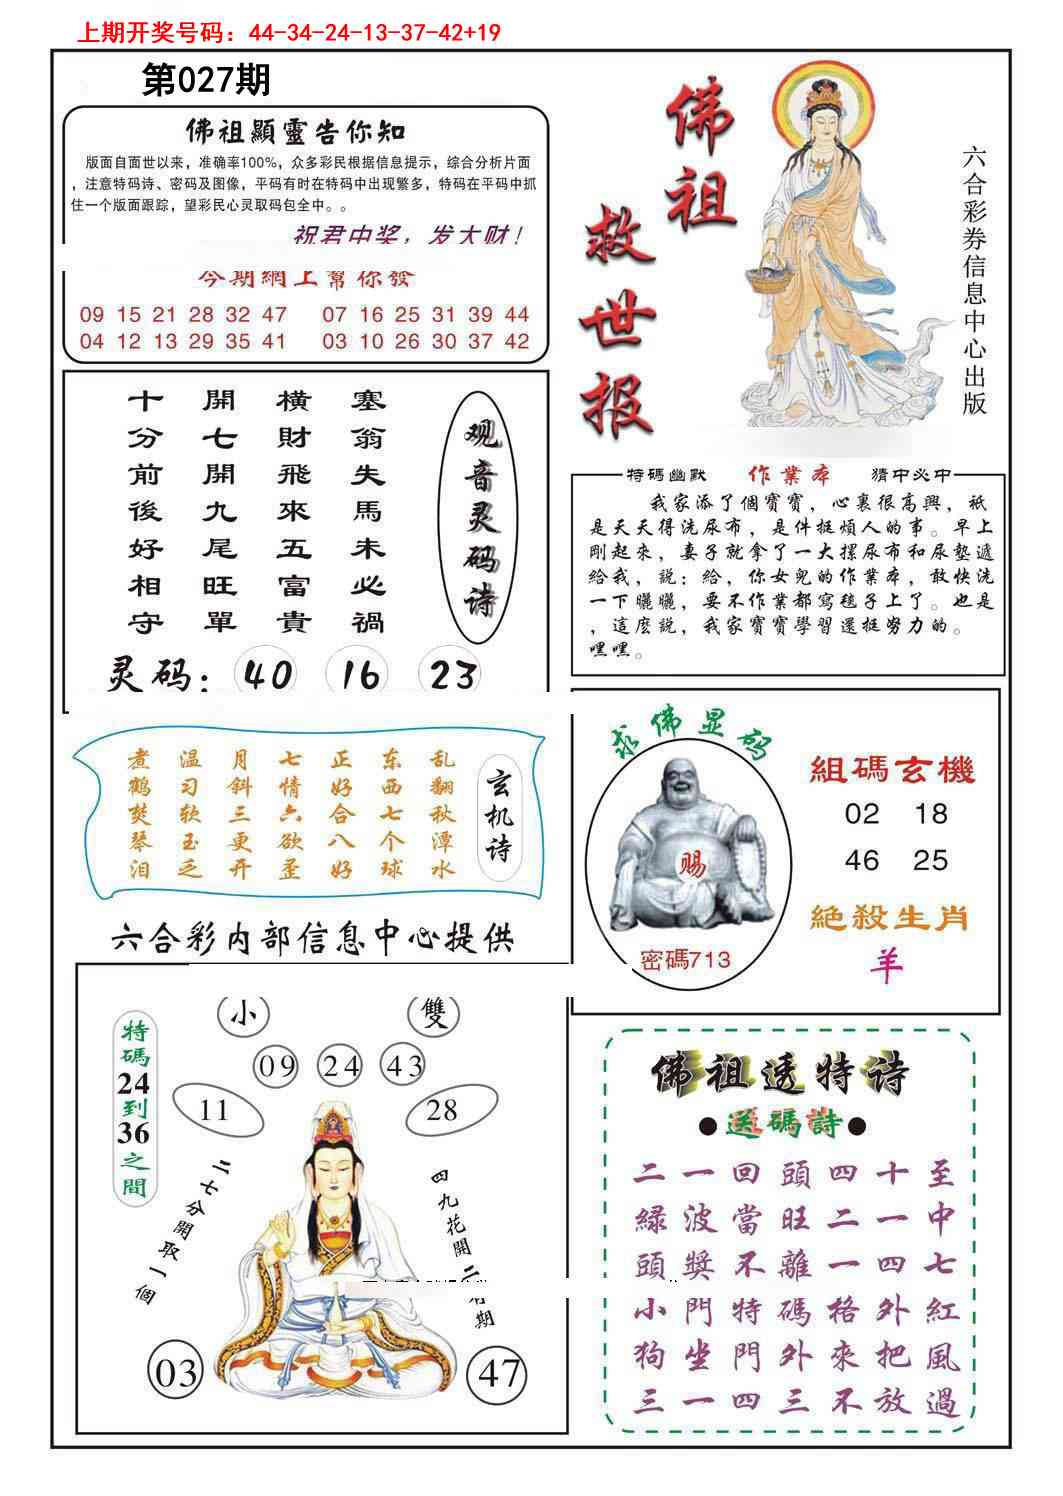 上期开奖号码：44-34-24-13-37-42+19
第027期
佛祖顯靈告你知
版面自面世以来，准确率100%，众多彩民根据信息提示，综合分析片面
，注意特码诗、密码及图像，平码有时在特码中出现繁多，特码在平码中抓
住一个版面跟踪，望彩民心灵取码包全中。。
祝君中奖，发大财！
今期網上幫你發
09 15 21 28 32 47 07 16 25 31 39 44
04 12 13 29 35 41 03 10 26 30 37 42
佛祖
救世报
六合彩券信息中心出版
观音灵码诗
塞翁失馬未必禍
橫財飛來五富貴
開七開九尾旺單
十分前後好相守
灵码：40 16 23
特碼幽默 作業本 猜中必中
我家添了個寶寶，心裏很高興，衹
是天天得洗尿布，是件挺煩人的事。早上
剛起來，妻子就拿了一大摞尿布和尿墊遞
給我，説：給，你女兒的作業本，敢快洗
一下曬曬，要不作業都寫毯子上了。也是
，這麼説，我家寶寶學習還挺努力的。
嘿嘿。
玄机诗
乱翻秋潭水
东西七个球
正好合八好
七情六欲歪
月斜三更开
温习软玉乏
煮鹤焚琴泪
求佛显码
赐
密碼713
組碼玄機
02 18
46 25
絕殺生肖
羊
六合彩内部信息中心提供
小 雙
09 24 43
11 28
特碼24到36之間
二七分開取一個
四九花開二
期
03 47
佛祖透特诗
●送碼詩●
二一回頭四十至
緑波當旺二一中
頭獎不離一四七
小門特碼格外紅
狗坐門外來把風
三一四三不放過